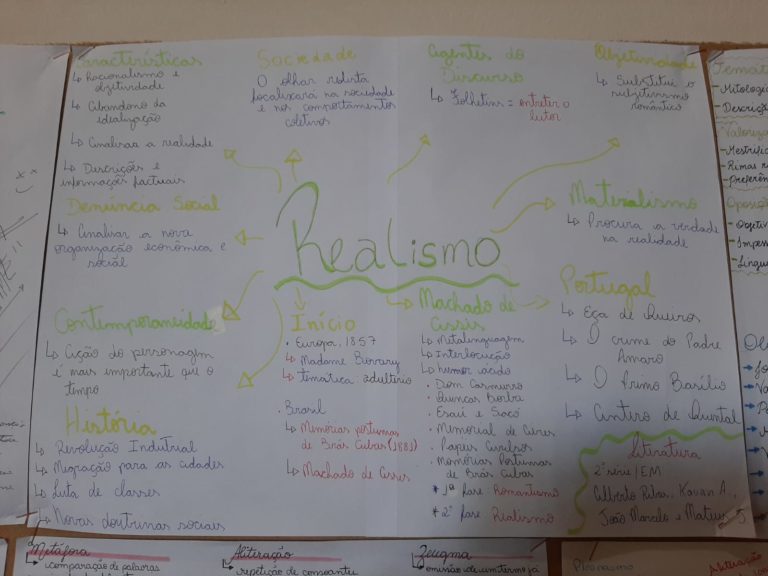 Características
↳ Racionalismo e
objetividade
↳ Abandono da
idealização
↳ Analisar a realidade
↳ Descrições e
informações factuais
Sociedade
O olhar realista
focalizará na sociedade
e nos comportamentos
coletivos
Agentes do
Discurso
↳ Folhetins = entreter o
leitor
Objetividade
↳ Substitui o
subjetivismo
romântico
Denúncia Social
↳ Analisar a nova
organização econômica e
social
Realismo
Materialismo
↳ Procura a verdade
na realidade
Contemporaneidade
↳ Ação do personagem
é mais importante que o
tempo
História
↳ Revolução Industrial
↳ Migração para as cidades
↳ Luta de classes
↳ Novas doutrinas sociais
Início
• Europa, 1857
↳ Madame Bovary
↳ temática: adultério
• Brasil
↳ Memórias póstumas
de Brás Cubas (1881)
↳ Machado de Assis
Machado de
Assis
↳ Metalinguagem
↳ Interlocução
↳ humor ácido
• Dom Casmurro
• Quincas Borba
• Esaú e Jacó
• Memorial de Aires
• Papéis Avulsos
• Memórias Póstumas
de Brás Cubas
* 1ª fase: Romantismo
* 2ª fase: Realismo
Portugal
↳ Eça de Queirós
↳ O crime do Padre
Amaro
↳ O Primo Basílio
↳ Antero de Quental
Literatura
2ª série / EM
Gilberto Ribas, Kauan A.,
João Marcelo e Mateus S
Temát
- Mitologia
- Descriçõ
Valoriza
- Rimas ri
- Preferên
Oposiçã
- Objetiv
- Impess
- Lingua
Metáfora
comparação de palavras
Aliteração
repetição de consoante
Zeugma
omissão de um termo já
Pleonasmo